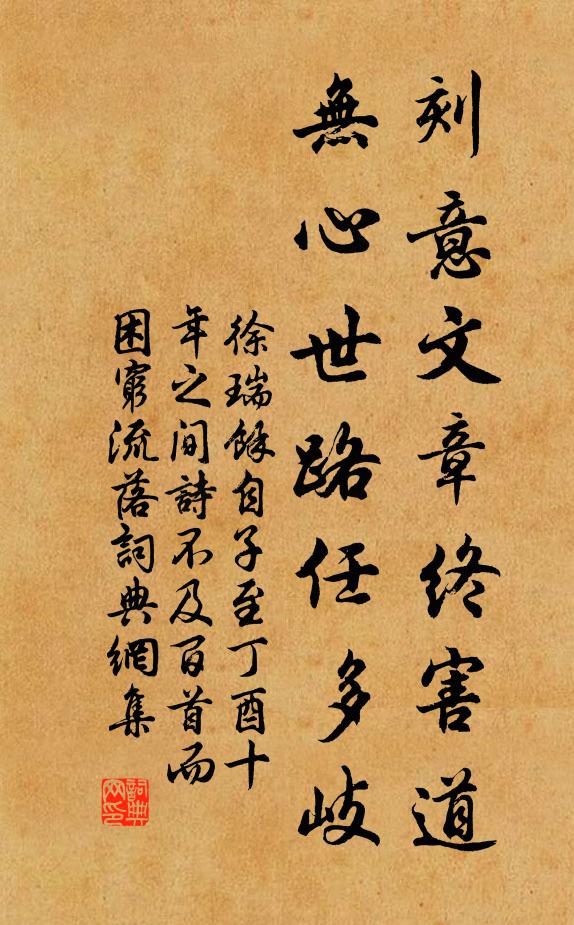 刻意文章終害道
無心世路任多岐
徐瑞餘自子至丁酉十
年之間詩不及百首而
困窮流落詞典網集
詞典網印